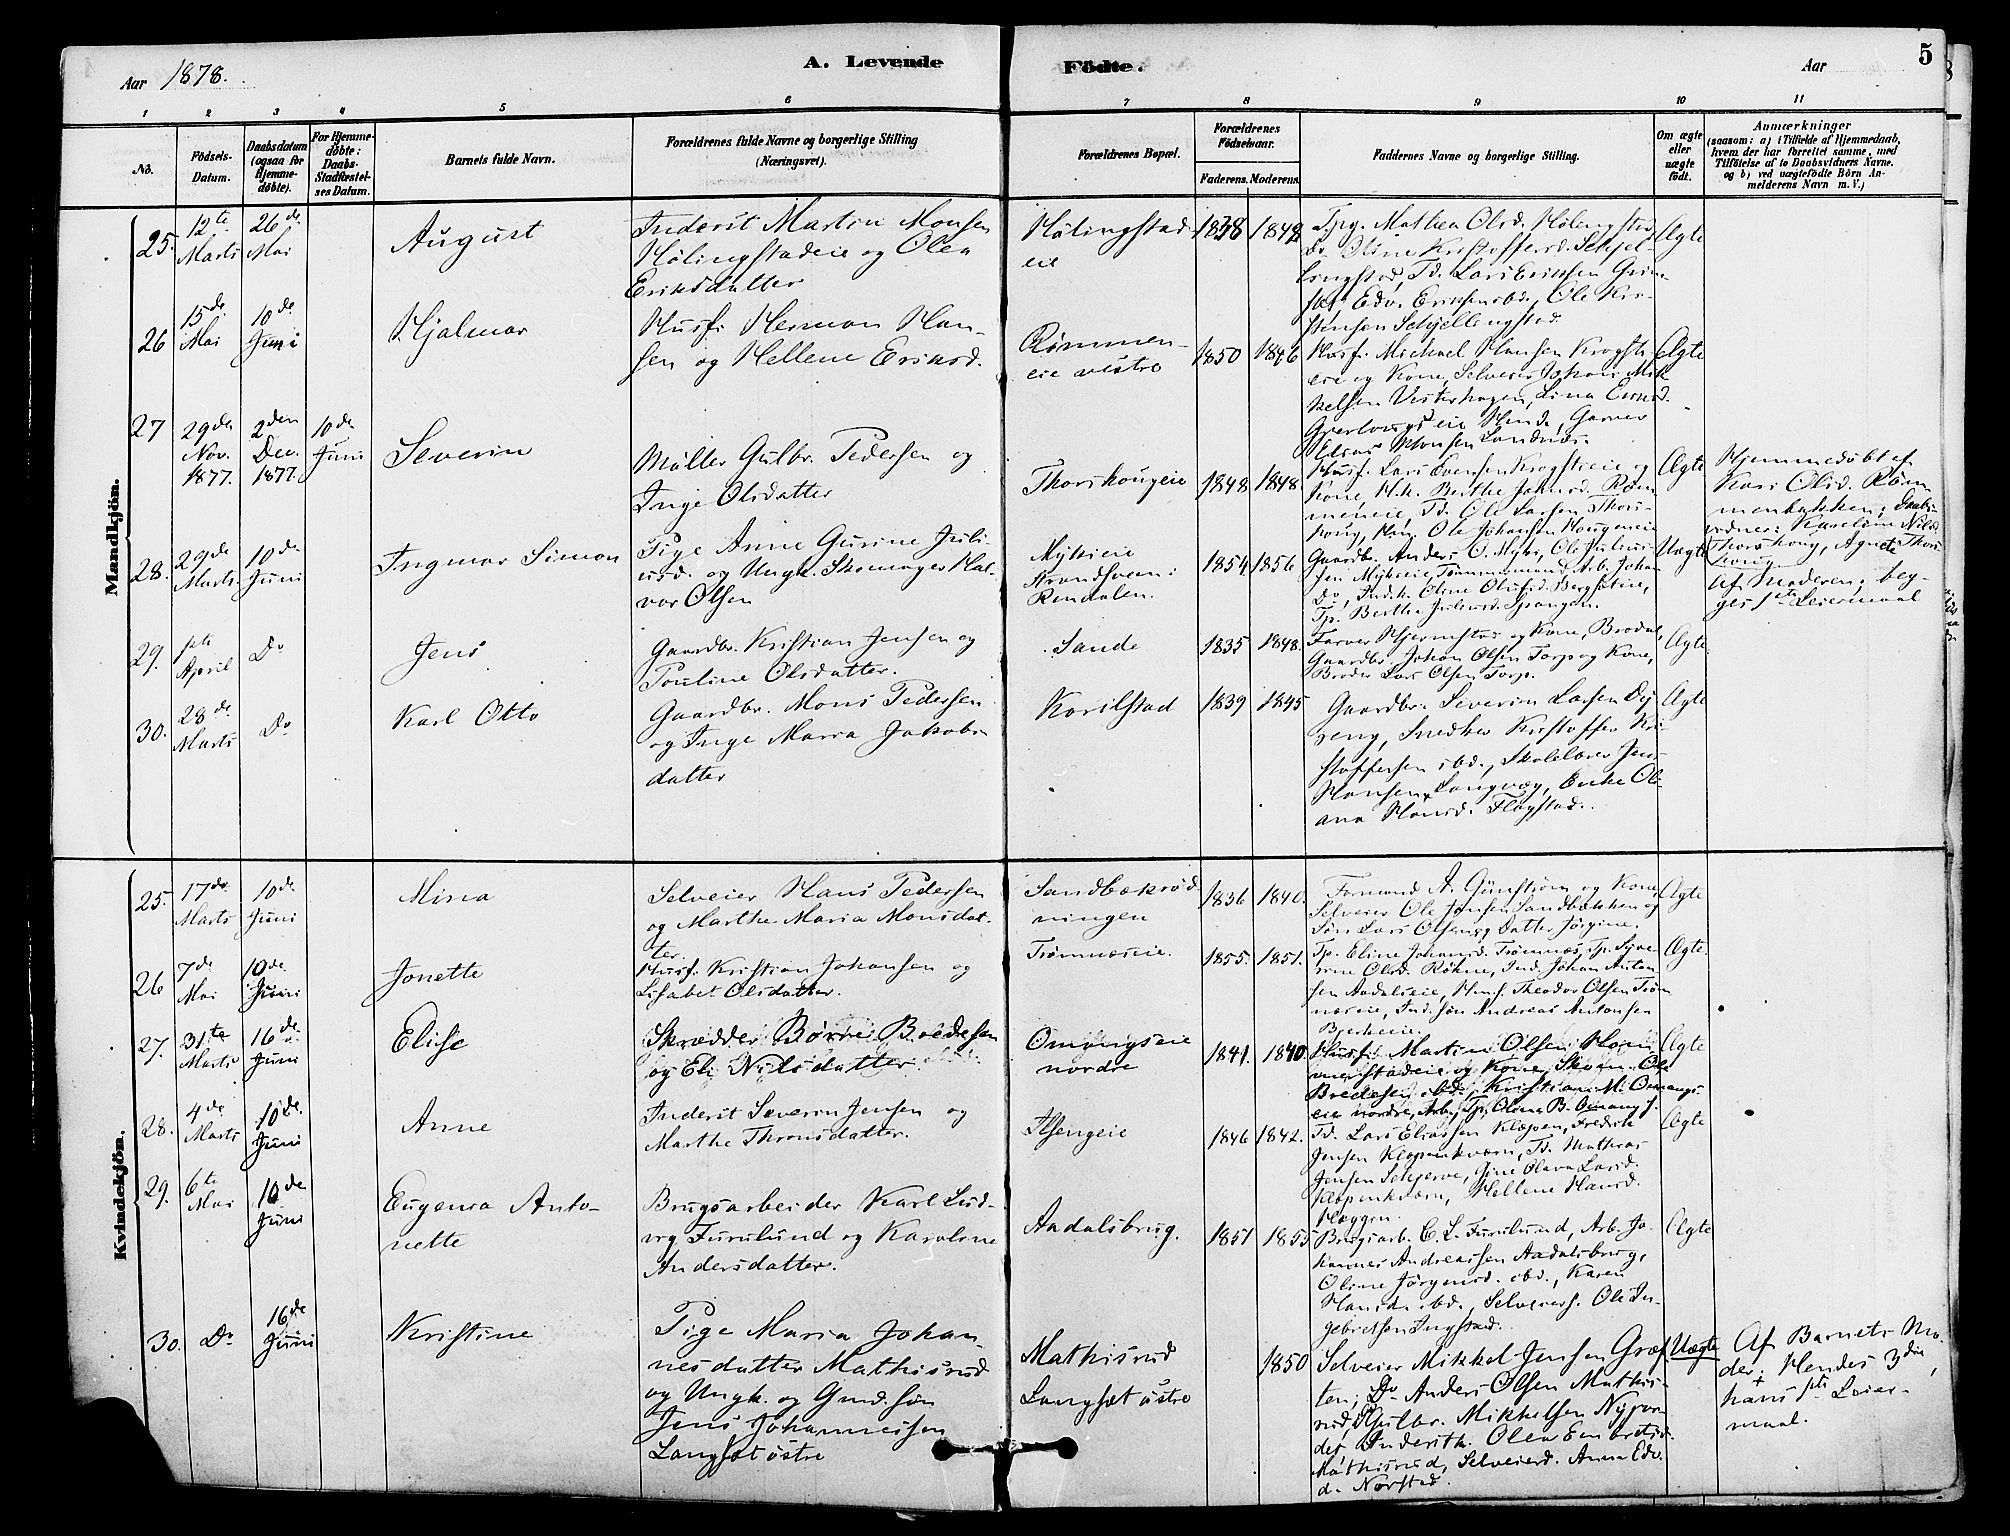 Aar 1878.
A. Levende Födte.
Aar
5
1 2 3 4 5 6 7 8 9 10 11
No.
Födsels-
Datum.
Daabsdatum
(ogsaa for
Hjemme-
döbte).
For Hjemme-
döbte:
Daabs-
Stadfæstel-
ses Datum.
Barnets fulde Navn.
Forældrenes fulde Navne og borgerlige Stilling
(Næringsvei).
Forældrenes Bopæl.
Forældrenes
Födselsaar.
Faderens. Moderens.
Faddernes Navne og borgerlige Stilling.
Om ægte
eller
uægte
födt.
Anmærkninger
(saasom: a) i Tilfælde af Hjemmedaab,
hvem der har forrettet samme, med
Tilföielse af to Daabsvidners Navne.
og b) ved uægtefödte Börn An-
melderens Navn m. V.)
Mandkjön.
25. 12te Marts
26de Mai
August
Inderst Martin Monsen
Hølingstadeie og Olea
Eriksdatter
Hølingstad
eie
1838 1842
Tpg. Mathea Olsd. Hølingstad
Do Oline Kristoffersd. Schjel-
lingstad, Td. Lars Eriksen
Edv. Eriksen ibd., Ole Kri-
stensen Schjellingstad.
Ægte
26 15de Mai
10de Juni
Hjalmar
Husf. Herman Han-
sen og Hellene Eriksd.
Rømmen-
eie vestre
1850 1846
Husf. Michael Hansen Krogst-
eie og Kone, Selveier Johan Mik-
kelsen Vesterhagen, Lina
Elias Monsen
Ægte
27 29de Nov. 1877.
2den Dec. 1877.
10de Juni
Severin
Møller Gulbr. Pedersen og
Inge Olsdatter
Thorshougeie
1848 1848
Husf. Lars Svensen Krogsteie og
Kone, H.k. Berthe Johnsd. Røm-
meneie, Td. Ole Larsen Thors-
houg, Ole Johansen Hougeneie
Ægte
Hjemmedøbt af
Kari Olsd. Røm-
menbakken; Daabs-
vidner: Karoline Nilsd.
Thorshoug, Agnete Thors-
houg.
28. 29de Marts
10de Juni
Ingmar Simon
Pige Anne Gurine Juli-
usd. og Ungk. Skomager Hal-
vor Olsen
Myhreie
Strandsveen i
Rendalen.
1854 1856
Gaardbr. Anders O. Myhr, Ole Julius-
sen Myhreie, Tømmermand Arb. Johan
Do, Ind.k. Oline Olufsd. Bergseteie,
Tp. Berthe Juliusd. Spangen.
Uægte
Af Moderen; beg-
ges 1ste Leiermaal
29. 1ste April
Do
Jens
Gaardbr. Kristian Jensen og
Pouline Olsdatter.
Sande
1835 1848.
Farver Hjermstad og Kone, Brodal,
Gaardbr. Johan Olsen Torp og Kone,
Broder Lars Olsen Torp.
Ægte
30. 28de Marts
Do
Karl Otto
Gaardbr. Mons Pedersen
og Inge Maria Jakobs-
datter
Karilstad
1839 1845
Gaardbr. Severin Larsen Dy-
reng, Snedker Kristoffer Kri-
stoffersen ibd., Skolelærer Jens
Hansen Langvæg, Enke Oli-
ana Hansd. Flagstad.
Ægte
Kvindekjön.
25. 17de Marts
10de Juni
Mina
Selveier Hans Pedersen
og Marthe Maria Monsdat-
ter.
Sandbækrød-
ningen
1836 1840.
Formand A. Günstrøm og Kone
Selveier Ole Jonsen Sandbækken og
Søn Lars Olsen og Datter Jørgine.
Ægte
26 7de Mai
10de Juni
Jonette
Husf. Kristian Johansen og
Lisabet Olsdatter.
Trømnæseie.
1855. 1851.
Tp. Eline Johannd. Trømnæs, Tp. Syve-
rine Olsd. Røhne, Ind. Johan Anton-
sen Aadalseie, Husf. Theodor Olsen Trøm-
næseie, Ind. søn Andreas Antonsen
Bjerkeeie.
Ægte.
27. 31te Marts
16de Juni
Elise
Skrædder Børre Bredesen
og Eli Nilsdatter.
Omangseie
nordre
1841. 1840.
Husf. Martin Olsen Hom-
merstadeie og Kone, Skom. Ole
Bredesen ibd., Kristian M. Omangs-
eie nordre, Arb., Tp. Oline B. Omang s.
Ægte
28. 4de Marts
10de Juni
Anne
Inderst Severin Jensen og
Marthe Thronsdatter.
Ilsengeie
1846 1842.
Td. Lars Eliassen Kløpen, Fredrik
Jensen Kløpenkværn, Td. Mathias
Jensen Schjerve, Gine Olava Larsd.
Kløpenkværn, Hellene Hansd.
Hæggen.
Ægte
29. 6te Mai
10de Juni
Eugenia Anto-
nette
Brugsarbeider Karl Lud-
vig Furulund og Karoline
Andersdatter.
Aadalsbrug.
1851 1855
Brugsarb. C. L. Furulund, Arb. Jo-
hannes Andreassen Aadalsbrug,
Oline Jørgensd. ibd., Karen
Hansd. ibd., Selveiers. Ole In-
gebretsen Ingstad.
Ægte
30. Do
16de Juni
Kristine
Pige Maria Johan-
nesdatter Mathisrud
og Ungk. og Gmd. søn
Jens Johannessen
Langset østre
Mathisrud
Langset østre
1850
Selveier Mikkel Jensen Græf-
ten, Do Anders Olsen Mathis-
rud, Gulbr. Mikkelsen
Inderstk. Olea Embretsd.
Mathisrud, Selveierd. Anna Edv.
d. Norstad.
Uægte
Af Barnets Mo-
der; Hendes 3die,
hans 1ste Leier-
maal.